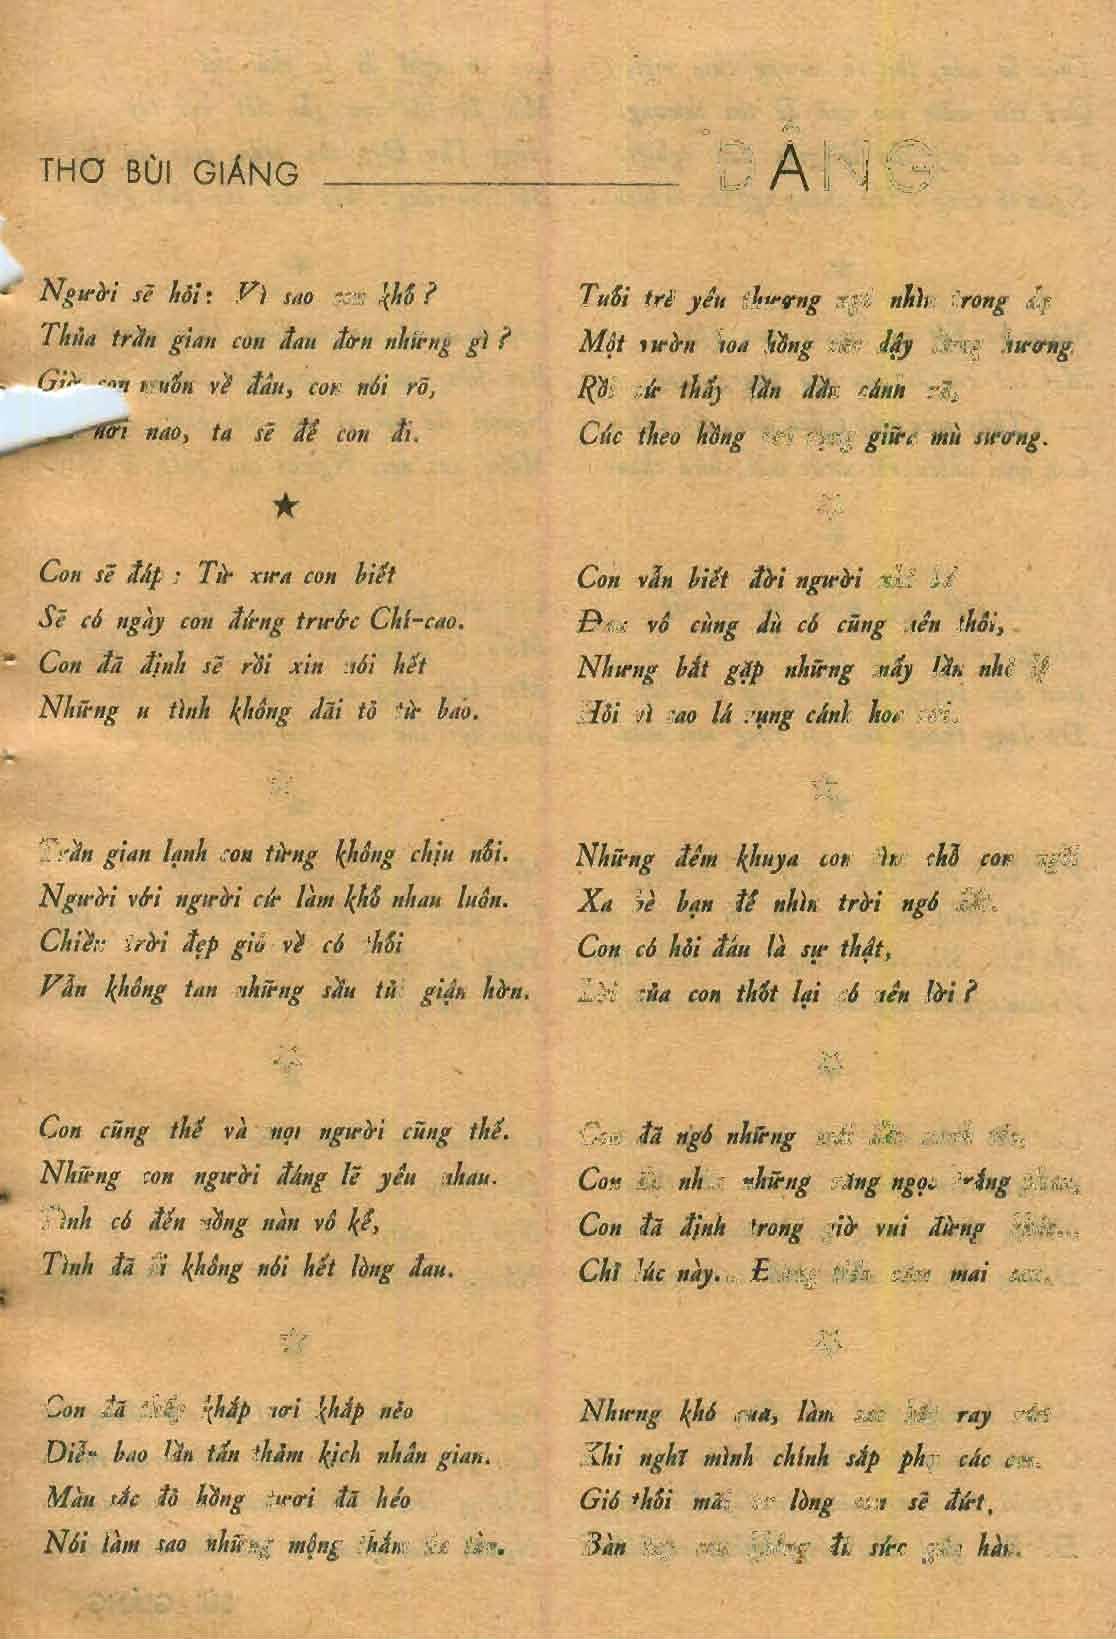 THƠ BÙI GIÁNG
DÂNG
Người sẽ hỏi: Vì sao con khổ?
Thủa trần gian con đau đớn những gì?
Giờ con muốn về đâu, con nói rõ,
nơi nao, ta sẽ để con đi.
★
Con sẽ đáp: Từ xưa con biết
Sẽ có ngày con đứng trước Chí-cao.
Con đã định sẽ rồi xin nói hết
Những u tình không dãi tỏ từ bao.
Trần gian lạnh con từng không chịu nổi.
Người với người cứ làm khổ nhau luôn.
Chiều trời đẹp gió về có thổi
Vẫn không tan những sầu tủi giận hờn.
Con cũng thế và mọi người cũng thế.
Những con người đáng lẽ yêu nhau.
Tình có đến nồng nàn vô kể,
Tình đã đi không nói hết lòng đau.
Con đã thấy khắp nơi khắp nẻo
Diễn bao lần tấn thảm kịch nhân gian.
Màu sắc đỏ hồng tươi đã héo
Nói làm sao những mộng thắm
Tuổi trẻ yêu thương ngó nhìn trong
Một vườn hoa hồng dậy hương
Rồi cứ thấy lần lần cánh rã,
Cúc theo hồng rụng giữa mù sương.
Con vẫn biết đời người
Đau vô cùng dù có cũng nên thôi,
Nhưng bắt gặp những mấy lần nhỏ lệ
Hỏi vì sao lá rụng cánh hoa rơi.
Những đêm khuya con tìm chỗ con ngồi
Xa bè bạn để nhìn trời ngó đất.
Con có hỏi đâu là sự thật,
Lời của con thốt lại có nên lời?
Con đã ngó những
Con đã những răng ngọc trắng
Con đã định trong giờ vui đừng khóc...
Chỉ lúc này... Đừng mai sau.
Nhưng khó quá, làm sao ray rứt
Khi nghĩ mình chính sắp phụ các em.
Gió thổi mãi lòng con sẽ đứt,
Bàn tay con không đủ sức hàn.